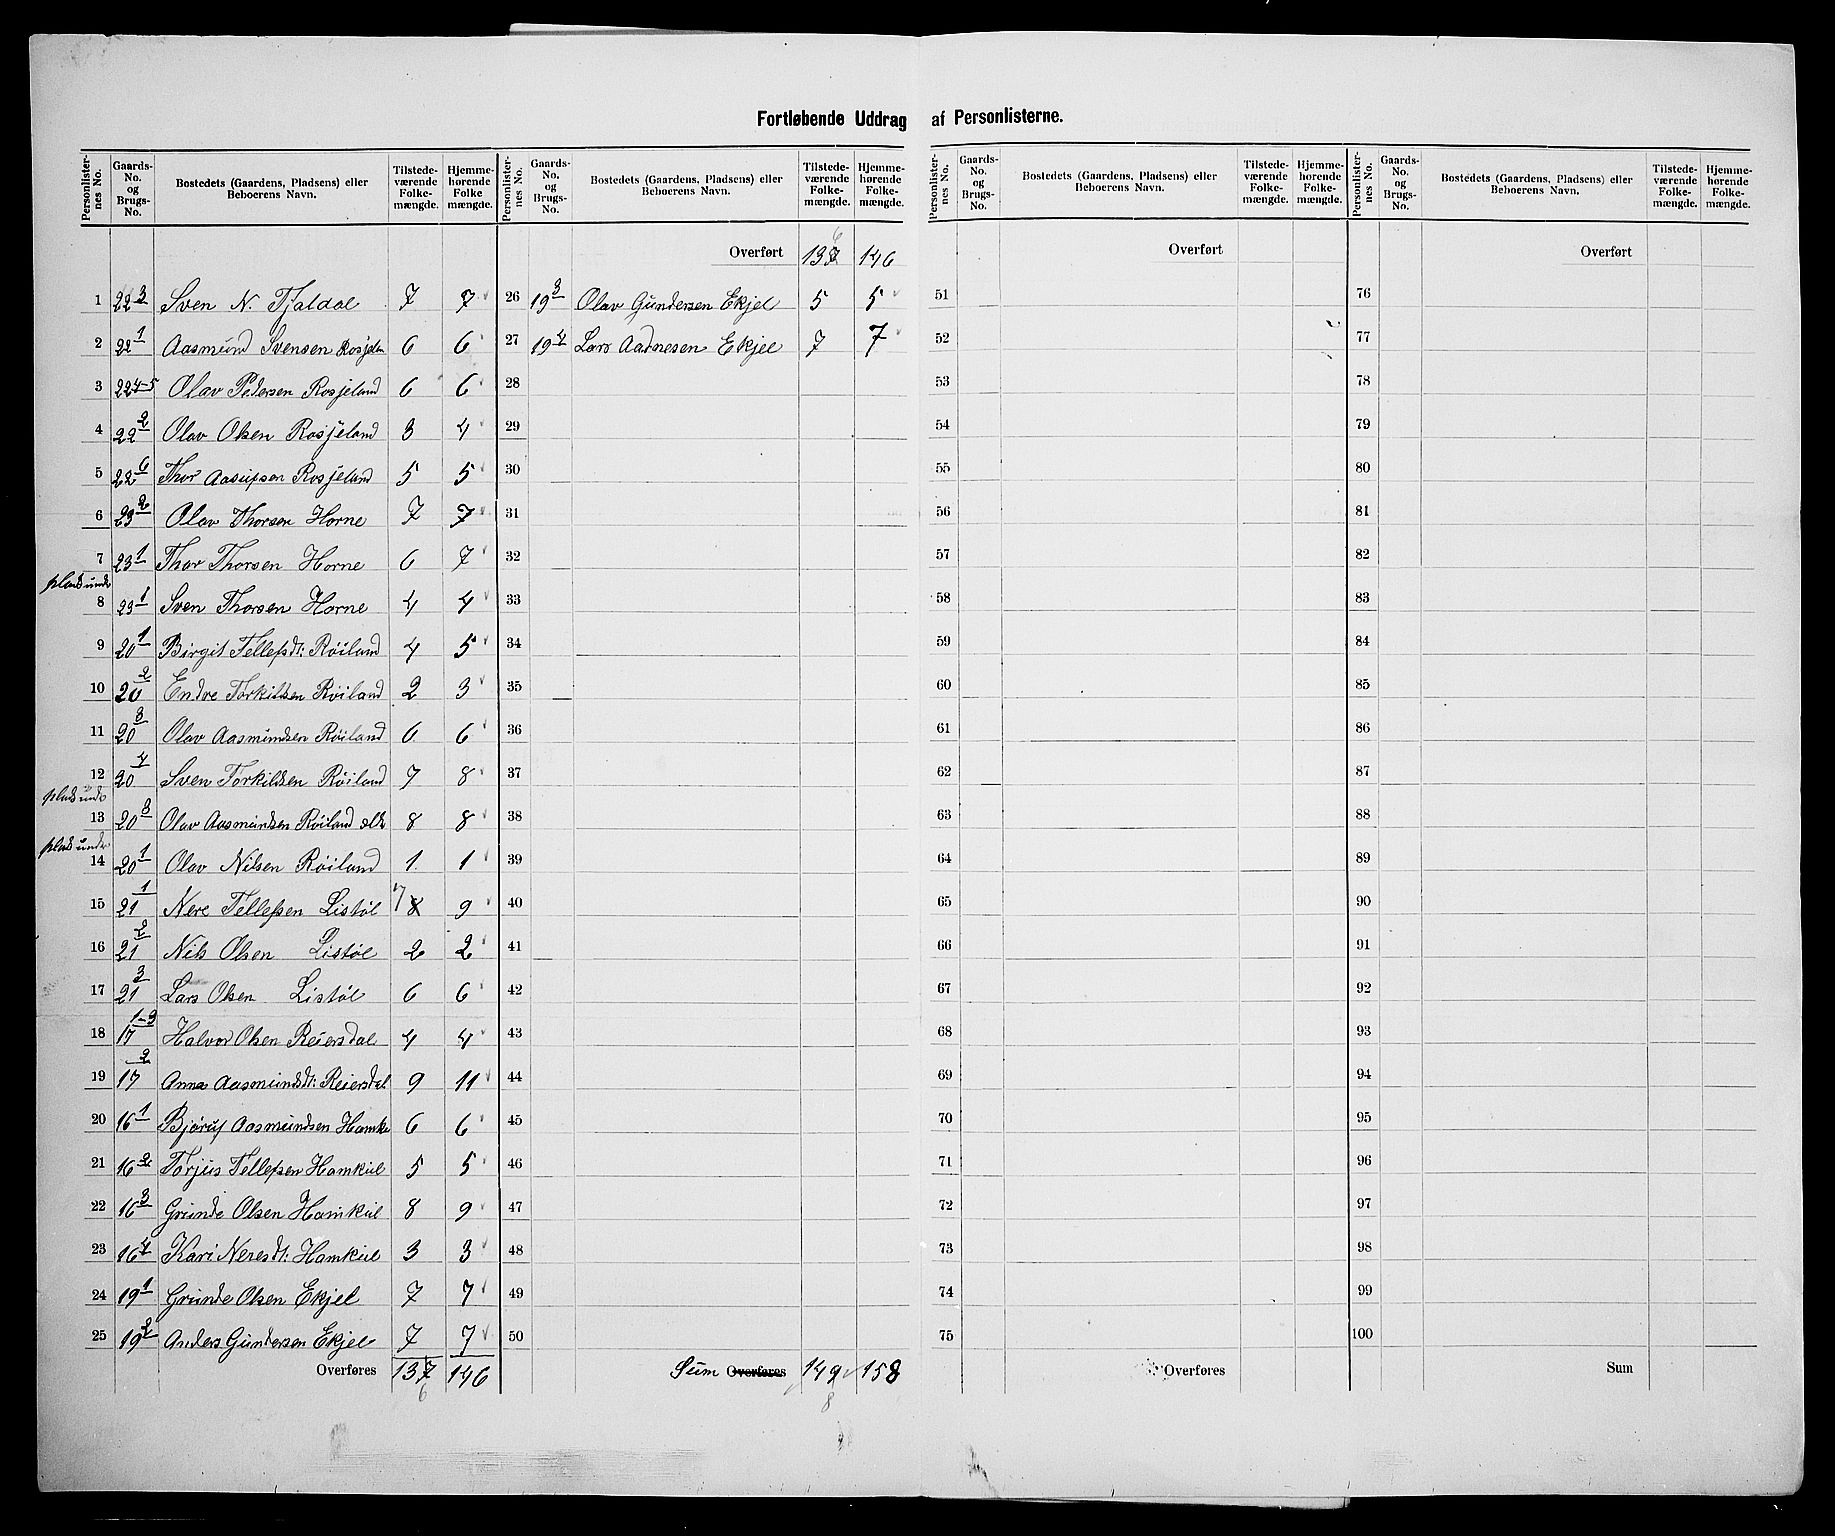 Fortløbende Uddrag af Personlisterne.
Personlisternes No. Gaards-No. og Brugs-No. Bostedets (Gaardens, Pladsens) eller Beboerens Navn. Tilstedeværende Folkemængde. Hjemmehørende Folkemængde.
1 22 3 Sven N. Tjaldal 7 7
2 22 1 Aasmund Svensen Rosjelan 6 6
3 22 4-5 Olav Pedersen Rosjeland 6 6
4 22 2 Olav Olsen Rosjeland 3 4
5 22 6 Thor Aasulfsen Rosjeland 5 5
6 23 2 Olav Thorsen Horne 7 7
7 23 1 Thor Thorsen Horne 6 7
plads unde
8 23 1 Sven Thorsen Horne 4 4
9 20 1 Birgit Tellefsdt: Röiland 4 5
10 20 2 Endre Torkildsen Röiland 2 3
11 20 3 Olav Aasmundsen Röiland 6 6
12 20 4 Sven Torkildsen Röiland 7 8
plads unde
13 20 3 Olav Aasmundsen Röiland 8 8
plads unde
14 20 1 Olav Nilsen Röiland 1 1
15 21 1 Nere Tellefsen Listöl 8 7 9
16 21 2 Nils Olsen Listöl 2 2
17 21 3 Lars Olsen Listöl 6 6
18 17 1-3 Halvor Olsen Reiersdal 4 4
19 17 2 Anna Aasmundsdt: Reiersdal 9 11
20 16 1 Bjørulf Aasmundsen Hamke 6 6
21 16 2 Torjus Tellefsen Hamkul 5 5
22 16 3 Grunde Olsen Hamkul 8 9
23 16 4 Kari Neresdt: Hamkul 3 3
24 19 1 Grunde Olsen Ekjel 7 7
25 19 2 Anders Gundersen Ekjel 7 7
Overføres 137 6 146
Personlisternes No. Gaards-No. og Brugs-No. Bostedets (Gaardens, Pladsens) eller Beboerens Navn. Tilstedeværende Folkemængde. Hjemmehørende Folkemængde.
Overført 137 6 146
26 19 3 Olav Gundersen Ekjel 5 5
27 19 4 Lars Aadnesen Ekjel 7 7
28
29
30
31
32
33
34
35
36
37
38
39
40
41
42
43
44
45
46
47
48
49
50
Sum Overføres 149 8 158
Personlisternes No. Gaards-No. og Brugs-No. Bostedets (Gaardens, Pladsens) eller Beboerens Navn. Tilstedeværende Folkemængde. Hjemmehørende Folkemængde.
Overført
51
52
53
54
55
56
57
58
59
60
61
62
63
64
65
66
67
68
69
70
71
72
73
74
75
Overføres
Personlisternes No. Gaards-No. og Brugs-No. Bostedets (Gaardens, Pladsens) eller Beboerens Navn. Tilstedeværende Folkemængde. Hjemmehørende Folkemængde.
Overført
76
77
78
79
80
81
82
83
84
85
86
87
88
89
90
91
92
93
94
95
96
97
98
99
100
Sum